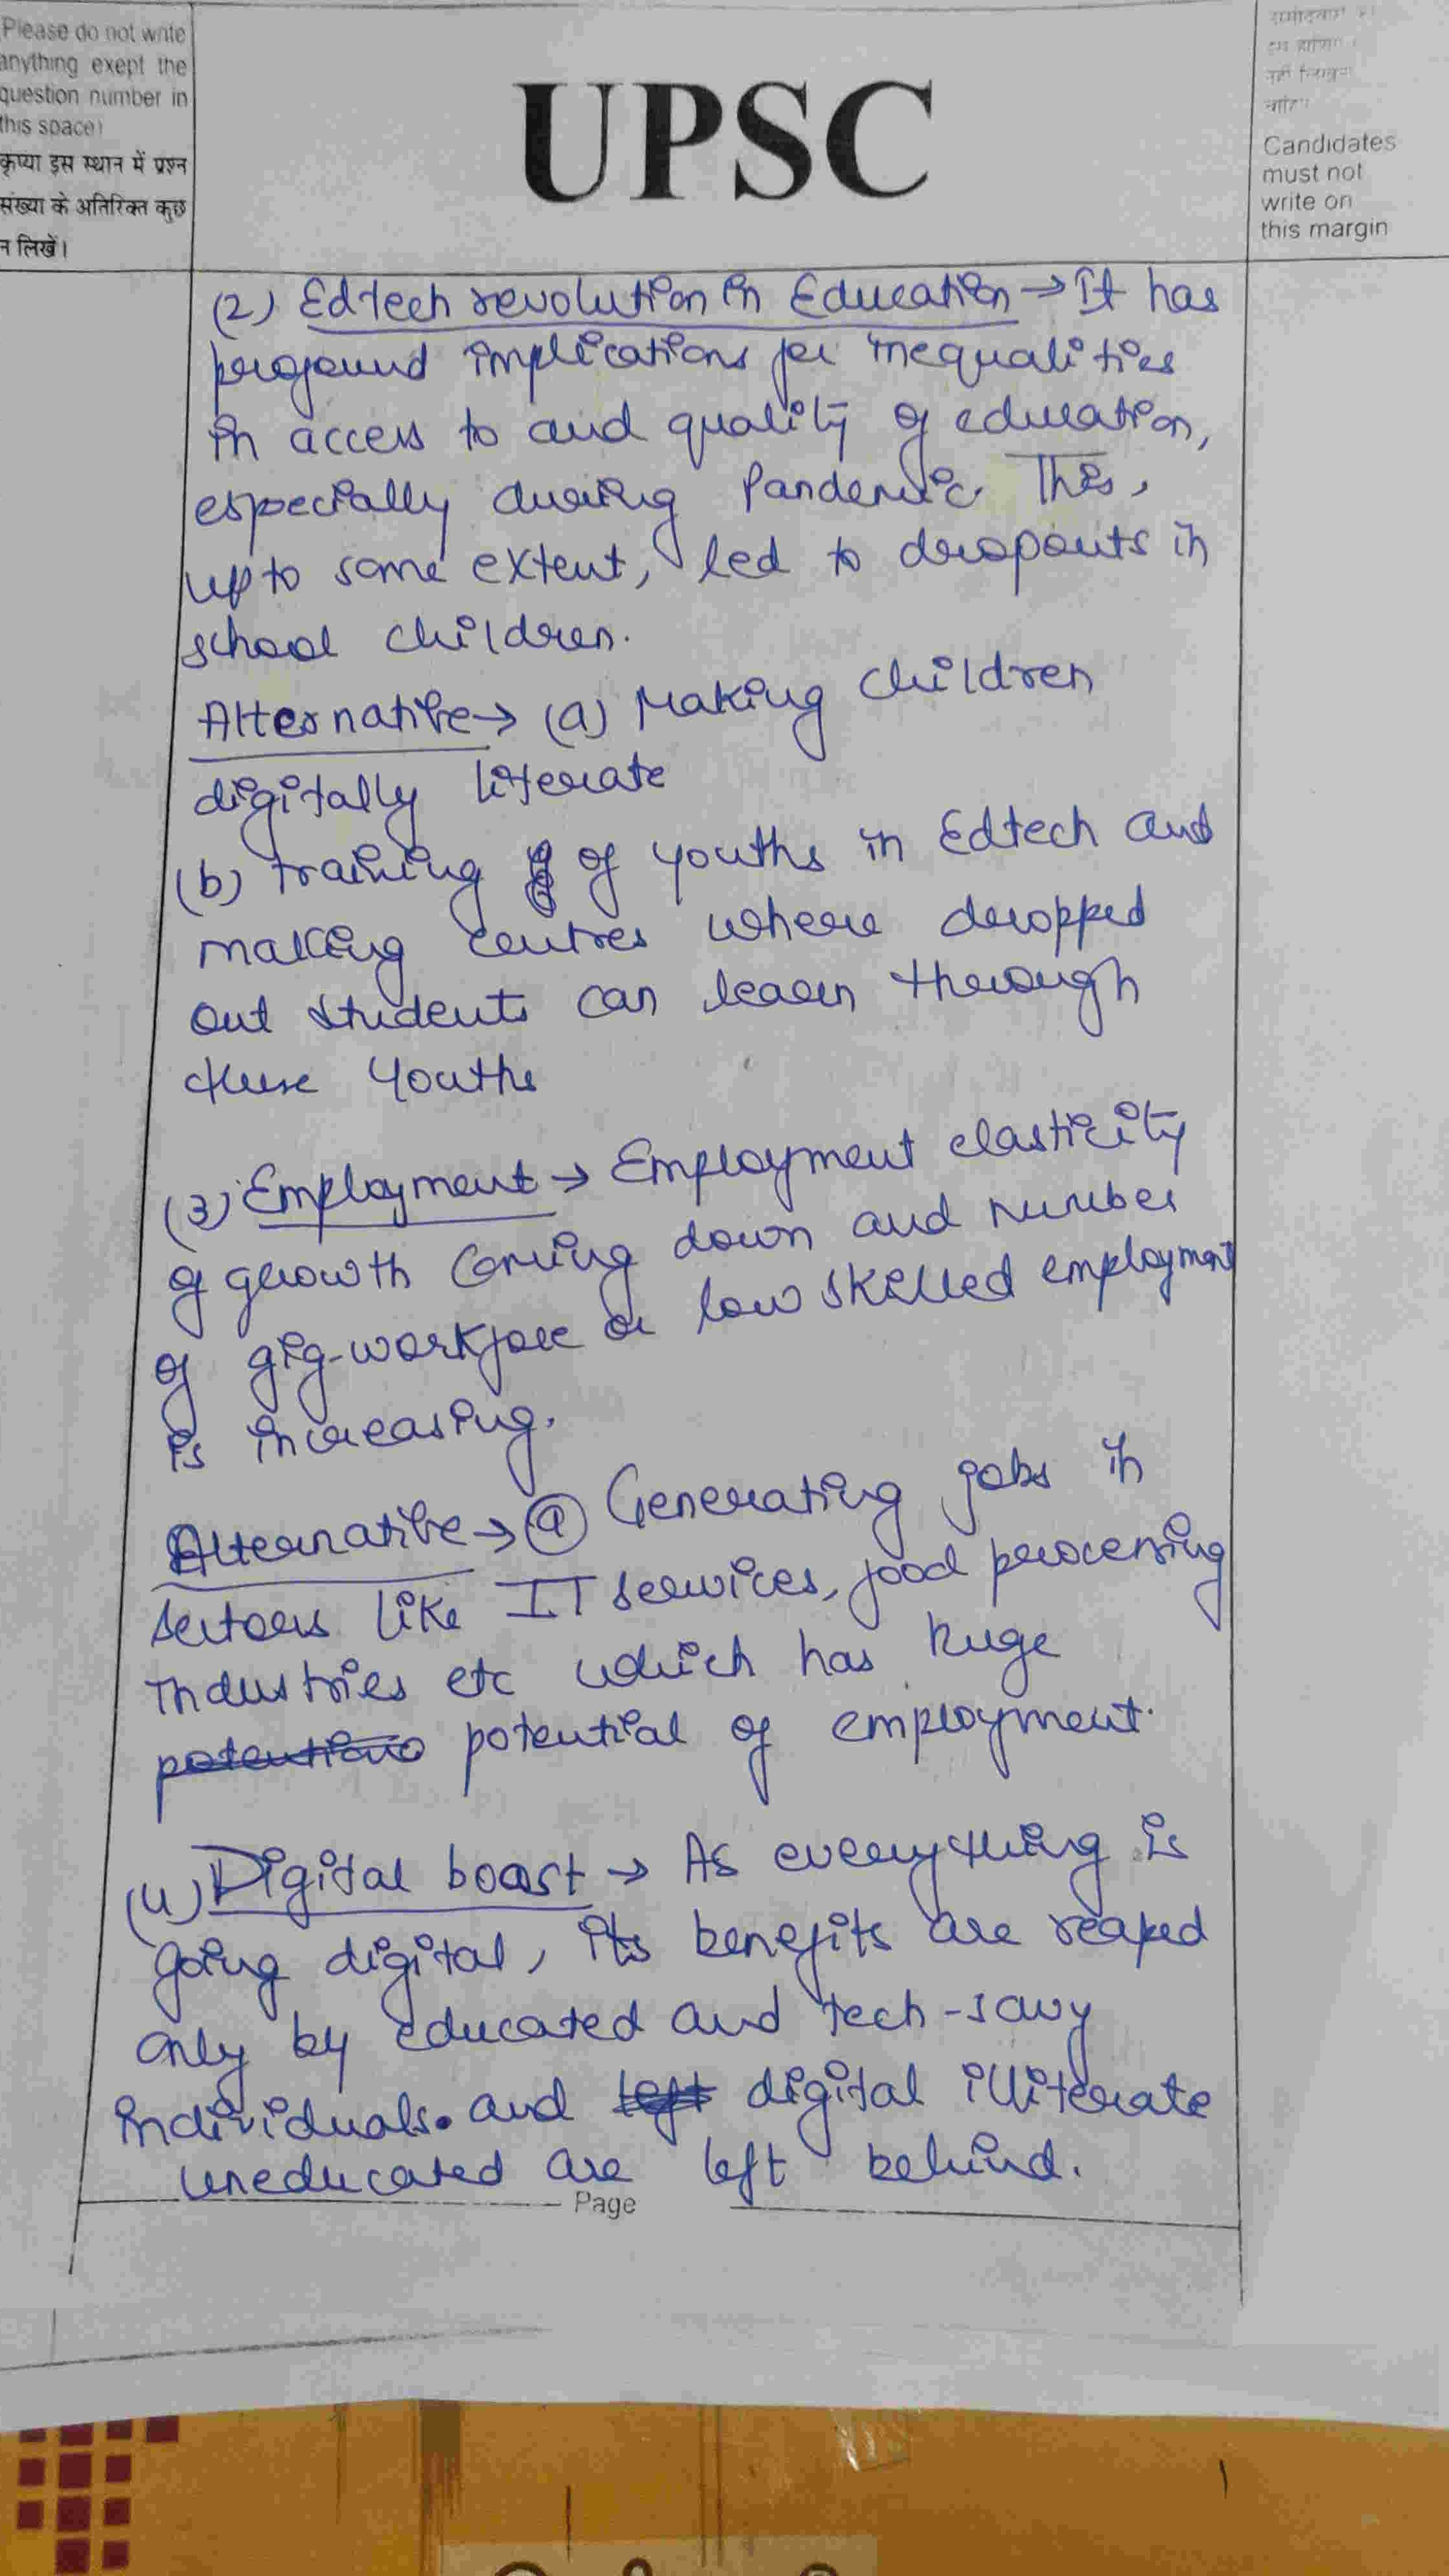 Please do not write
anything exept the
question number in
this space)
कृप्या इस स्थान में प्रश्न
संख्या के अतिरिक्त कुछ
न लिखें।
UPSC
Candidates
must not
write on
this margin
(2) Edtech revolution in Education → It has
profound implications for inequalities
in access to and quality of education,
especially during Pandemic. This,
upto some extent, led to dropouts in
school children.
Alternative → (a) Making children
digitally literate
(b) training of youths in Edtech and
making centres where dropped
out students can learn through
these youths
(3) Employment → Employment elasticity
of growth coming down and number
of gig-workforce or low skilled employment
is increasing.
Alternative → (a) Generating jobs in
sectors like IT services, food processing
industries etc which has huge
potential of employment.
(4) Digital boost → As everything is
going digital, its benefits are reaped
only by educated and tech-savy
individuals. and left digital illiterate
uneducated are left behind.
Page